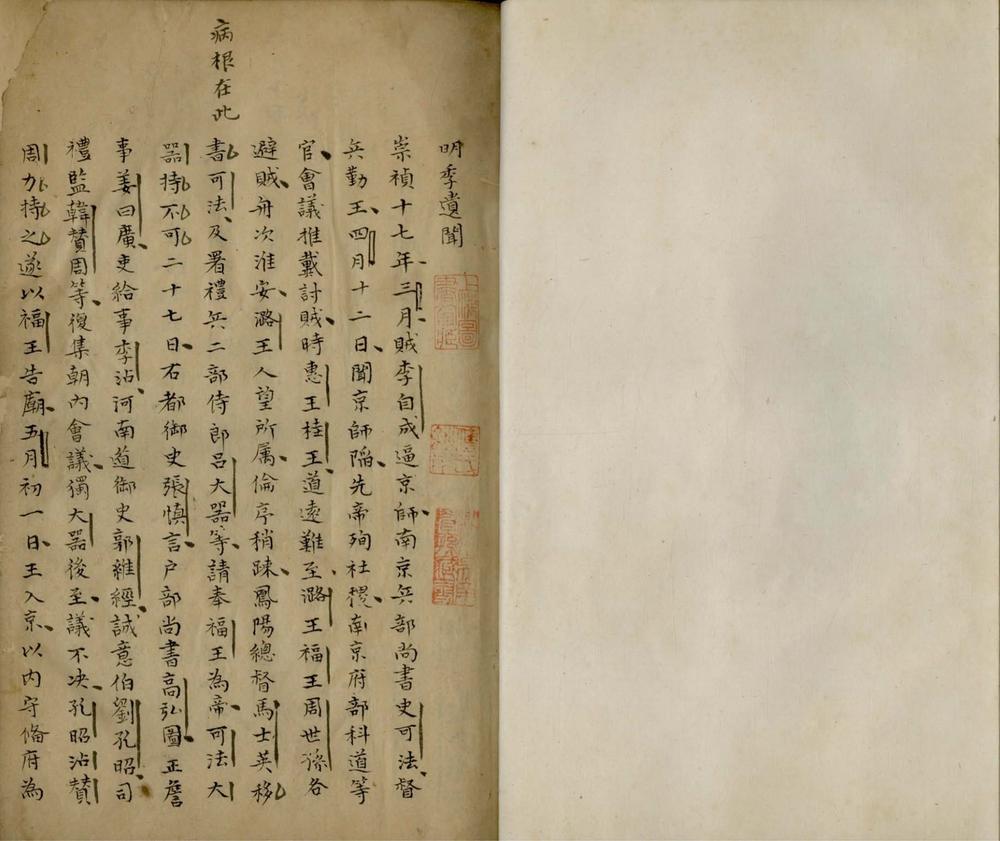 明季遺聞
崇禎十七年三月賊李自成逼京師南京兵部尚書史可法督
兵勤王四月十二日聞京師陷先帝殉社稷南京府部科道等
官會議推戴討賊時惠王桂王道遠難至潞王福王周世孫各
避賊舟次淮安潞王人望所属倫序稍踈鳳陽總督馬士英移
書可法及署禮兵二部侍郎呂大器等請奉福王為帝可法大
器持不可二十七日右都御史張慎言户部尚書高弘圖正詹
事姜曰廣吏給事李沾河南道御史郭維經誠意伯劉孔昭司
禮監韓贊周等復集朝內會議獨大器後至議不决孔昭沾贊
周力持之遂以福王告廟五月初一日王入京以内守俻府為
病根在此